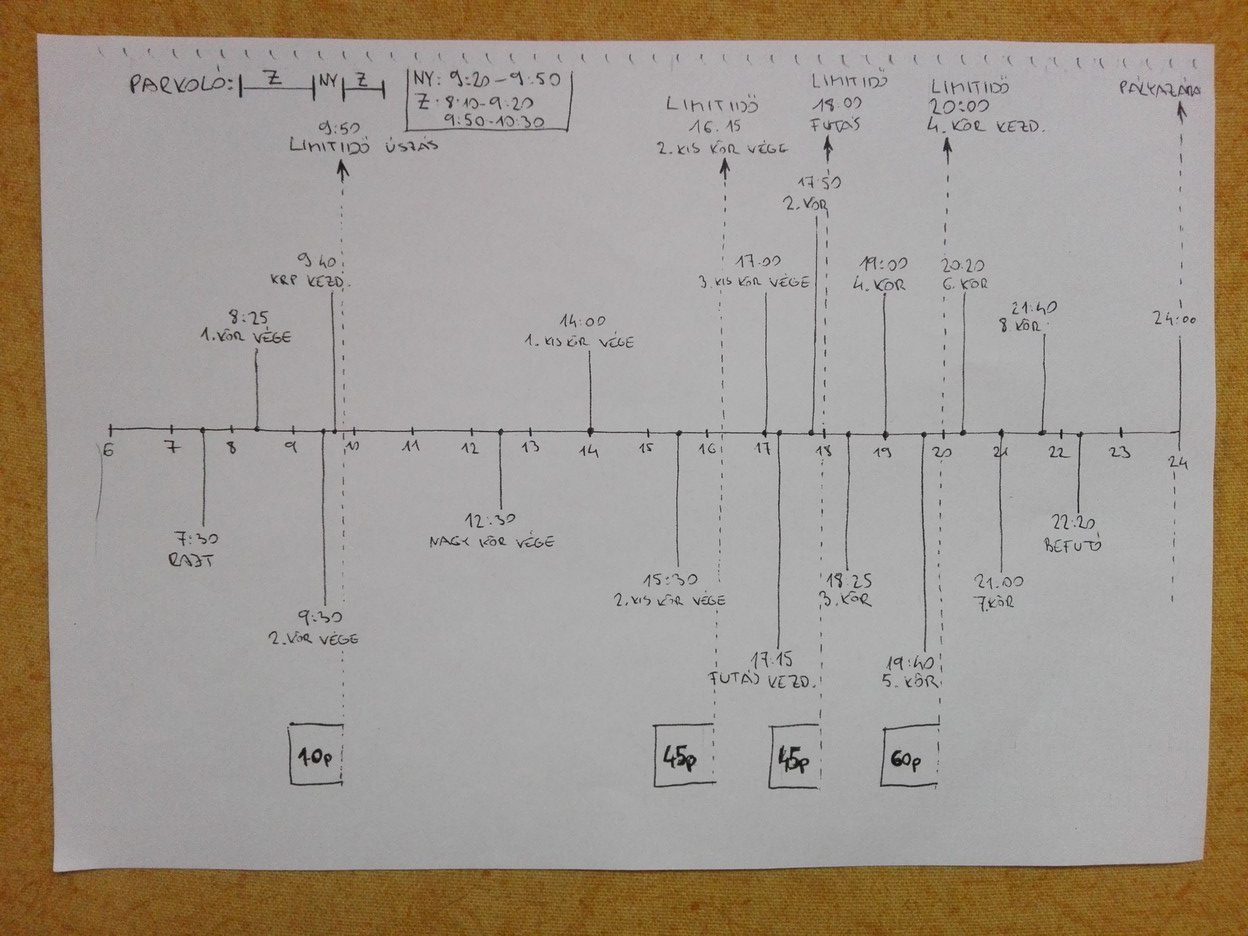 PARKOLÓ: Z NY Z
NY: 9:20-9:50
Z: 8:10-9:20
9:50-10:30
9:50
LIMITIDŐ ÚSZÁS
LIMITIDŐ
16.15
2. KIS KÖR VÉGE
LIMITIDŐ
18:00
FUTÁS
LIMITIDŐ
20:00
4. KÖR KEZD.
PÁLYAZÁRÁS
17:50
2. KÖR
9:40
KRP KEZD.
17:00
3. KIS KÖR VÉGE
19:00
4. KÖR
20:20
6. KÖR
8:25
1. KÖR VÉGE
14:00
1. KIS KÖR VÉGE
21:40
8. KÖR
24:00
6 7 8 9 10 11 12 13 14 15 16 17 18 19 20 21 22 23 24
7:30
RAJT
12:30
NAGY KÖR VÉGE
22:20
BEFUTÓ
9:30
2. KÖR VÉGE
15:30
2. KIS KÖR VÉGE
18:25
3. KÖR
21.00
7. KÖR
17:15
FUTÁS KEZD.
19:40
5. KÖR
10p 45p 45p 60p